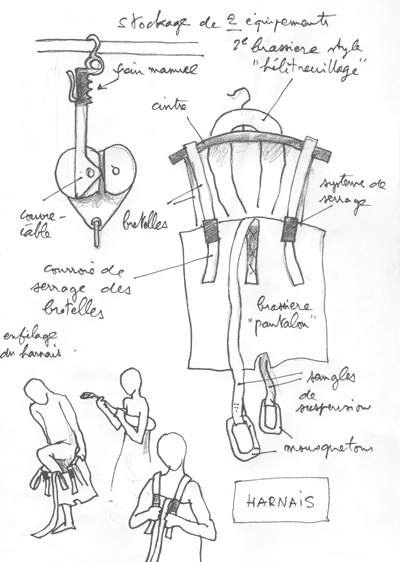 stockage de 2 équipements
2e brassière style
"hélitreuillage"
frein manuel
cintre
système de
serrage
couvre-
câble
bretelles
courroie de
serrage des
bretelles
brassière
"pantalon"
enfilage
du harnais.
sangles
de
suspension
mousquetons
HARNAIS